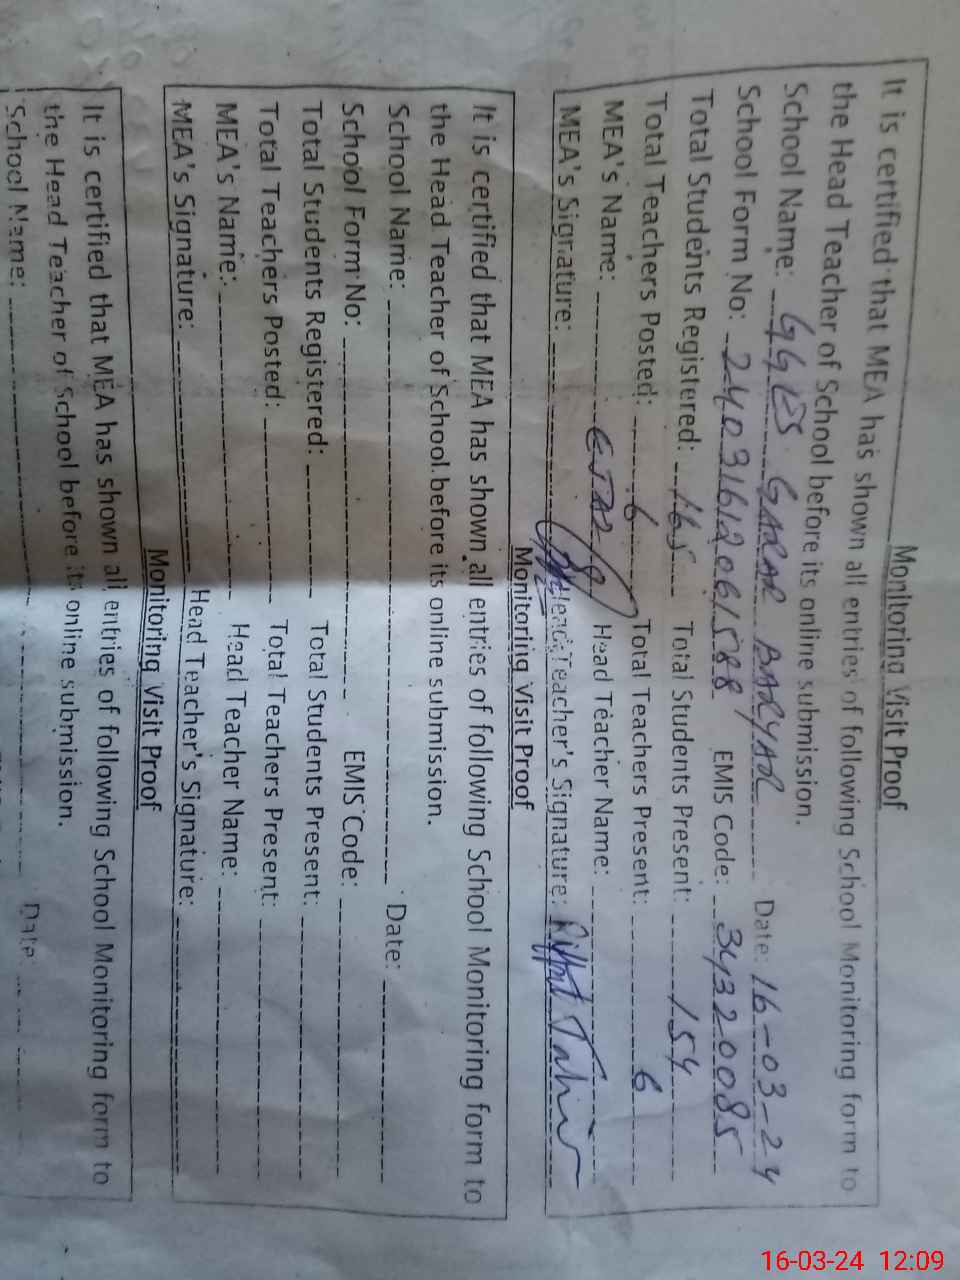 Monitoring Visit Proof
It is certified that MEA has shown all entries of following School Monitoring form to
the Head Teacher of School before its online submission.
School Name: GGES GARAR BARYAR Date: 16-03-24
School Form No: 240316120615788 EMIS Code: 34320085
Total Students Registered: 165 Total Students Present: 154
Total Teachers Posted: 6 Total Teachers Present: 6
MEA's Name: EJAZ Head Teacher Name:
MEA's Signature: Head Teacher's Signature: Riffat Tahir
Monitoring Visit Proof
It is certified that MEA has shown all entries of following School Monitoring form to
the Head Teacher of School before its online submission.
School Name: Date:
School Form No: EMIS Code:
Total Students Registered: Total Students Present:
Total Teachers Posted: Total Teachers Present:
MEA's Name: Head Teacher Name:
MEA's Signature: Head Teacher's Signature:
Monitoring Visit Proof
It is certified that MEA has shown all entries of following School Monitoring form to
the Head Teacher of School before its online submission.
School Name: Date:
16-03-24 12:09